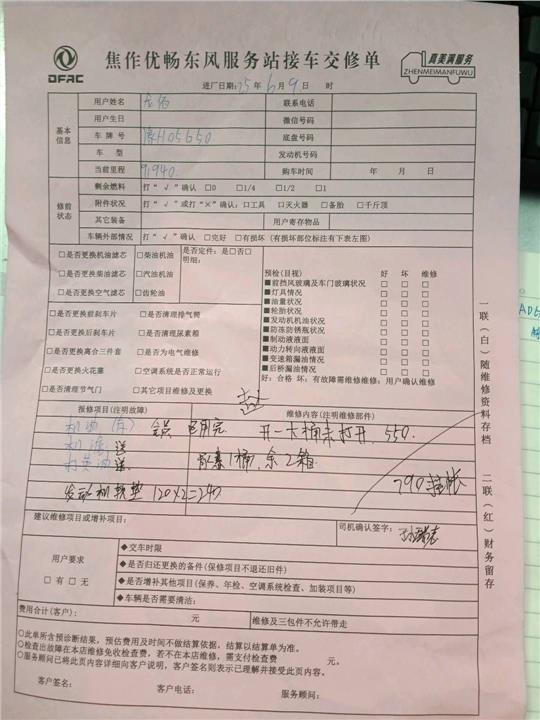 DFAC
焦作优畅东风服务站接车交修单
真美满服务
ZHENMEIMANFUWU
进厂日期：25年6月9日 时
基本信息
用户姓名
联系电话
用户生日
微信号码
车牌号 豫H05650
底盘号码
车型
发动机号码
当前里程 91940.
购车时间 年 月 日
修前状态
剩余燃料 打“√”确认 □0 □1/4 □1/2 □1
附件状况 打“√”或打“×”确认：□工具 □灭火器 □备胎 □千斤顶
其它装备
用户寄存物品
车辆外部情况 打“√”确认 □完好 □有损坏（有损坏部位标注有下表左图）
□是否更换机油滤芯 □柴油机油 是否定件：□是□否
□是否更换柴油滤芯 □汽油机油 明细：
□是否更换空气滤芯 □齿轮油
□是否更换前刹车片 □是否清理排气筒
□是否更换后刹车片 □是否清理尿素箱
□是否更换离合三件套 □是否为电气维修
□是否更换火花塞 □空调系统是否正常运行
□是否清理节气门 □其它项目维修及更换
预检（目视） 好 坏 维修
■前挡风玻璃及车门玻璃状况 □ □ □
■灯具情况 □ □ □
■油量状况 □ □ □
■轮胎状况 □ □ □
■发动机机油状况 □ □ □
■防冻防锈瓶状况 □ □ □
■制动液液面 □ □ □
■动力转向液液面 □ □ □
■变速箱漏油情况 □ □ □
■后桥漏油情况 □ □ □
好：合格 坏：有故障需维修维修：用户确认维修
报修项目（注明故障）
维修内容（注明维修部件）
机油 已用完 开一大桶未打开，550.
机滤 送
送 1桶，余2箱
发动机软垫 120×2=240
790挂帐
建议维修项目或增补项目：
司机确认签字：
用户要求
□有 □无
◆交车时限
◆是否归还更换的备件（保修项目不退还旧件）
◆是否增补其他项目（保养、年检、空调系统检查、加装项目等）
◆车辆是否需要清洁：
费用合计（客户）： 元
维修及三包件不允许带走
○此单所含预诊断结果，预估费用及时间不做结算依据，结算以结算单为准。
○检查出故障在本店维修免收检查费，若不在本店维修，需支付检查费 元。
○服务顾问已将此页内容详细向客户说明，客户签名则表示已理解并接受此页内容。
客户签名： 客户电话： 服务顾问：
一联（白）随维修资料存档
二联（红）财务留存